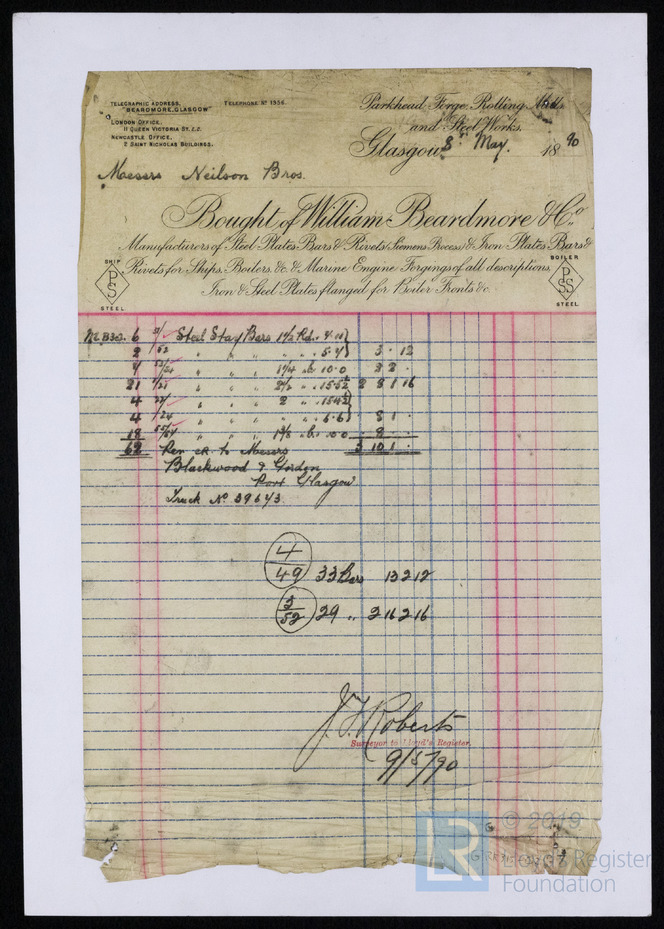 TELEGRAPHIC ADDRESS,
"BEARDMORE, GLASGOW"
TELEPHONE Nº 1556.
LONDON OFFICE,
11 QUEEN VICTORIA ST. E.C.
NEWCASTLE OFFICE,
2 SAINT NICHOLAS BUILDINGS.
Parkhead Forge, Rolling Mills
and Steel Works.
Glasgow, 8 May. 1890
Messrs Neilson Bros.
Bought of William Beardmore & Co.
Manufacturers of Steel Plates Bars & Rivets, (Siemens Process) & Iron Plates Bars &
Rivets for Ships, Boilers, &c. & Marine Engine Forgings of all descriptions,
Iron & Steel Plates flanged for Boiler Fronts &c.
SHIP PS STEEL
BOILER PSS STEEL
6 Steel Stay Bars 1½ Rd.
2 " " " " " 3 . 12
4 " " " 1¼ 10.0
21 " " " 2 8 1 16
4 " " " 2 "
4 " " " " " 6.6 3 1 .
18 " " " 10.0 8 .
62 3 10 1 .
Messrs
Blackwood & Gordon
Port Glasgow
Truck Nº 39643
4
49 33 Bars 13 2 12
3
52 29 " 2 16 2 16
J. F. Roberts
Surveyor to Lloyd's Register.
9/5/90
LR
© 2019
Lloyd's Register
Foundation